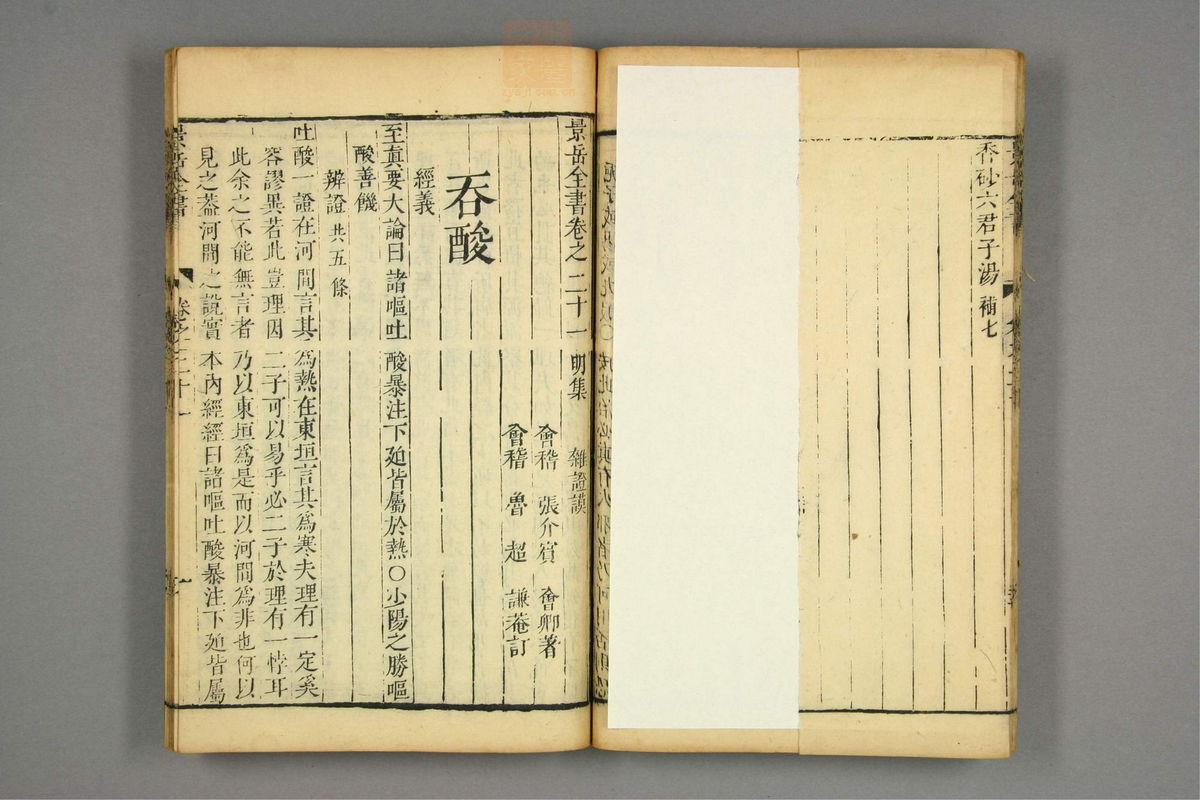 香砂六君子湯補七
景岳全書卷之二十一 明集 雜證謨
會稽 張介賓 會卿著
會稽 魯超 謙菴訂
吞酸
經義
至真要大論曰諸嘔吐酸暴注下廹皆屬於熱○少陽之勝嘔
酸善饑
辨證共五條
吐酸一證在河間言其為熱在東垣言其為寒夫理有一定奚
容謬異若此豈理因二子可以易乎必二子於理有一悖耳
此余之不能無言者乃以東垣為是而以河間為非也何以
見之葢河間之說實本內經經曰諸嘔吐酸暴注下廹皆屬
景岳全書
卷之二十一